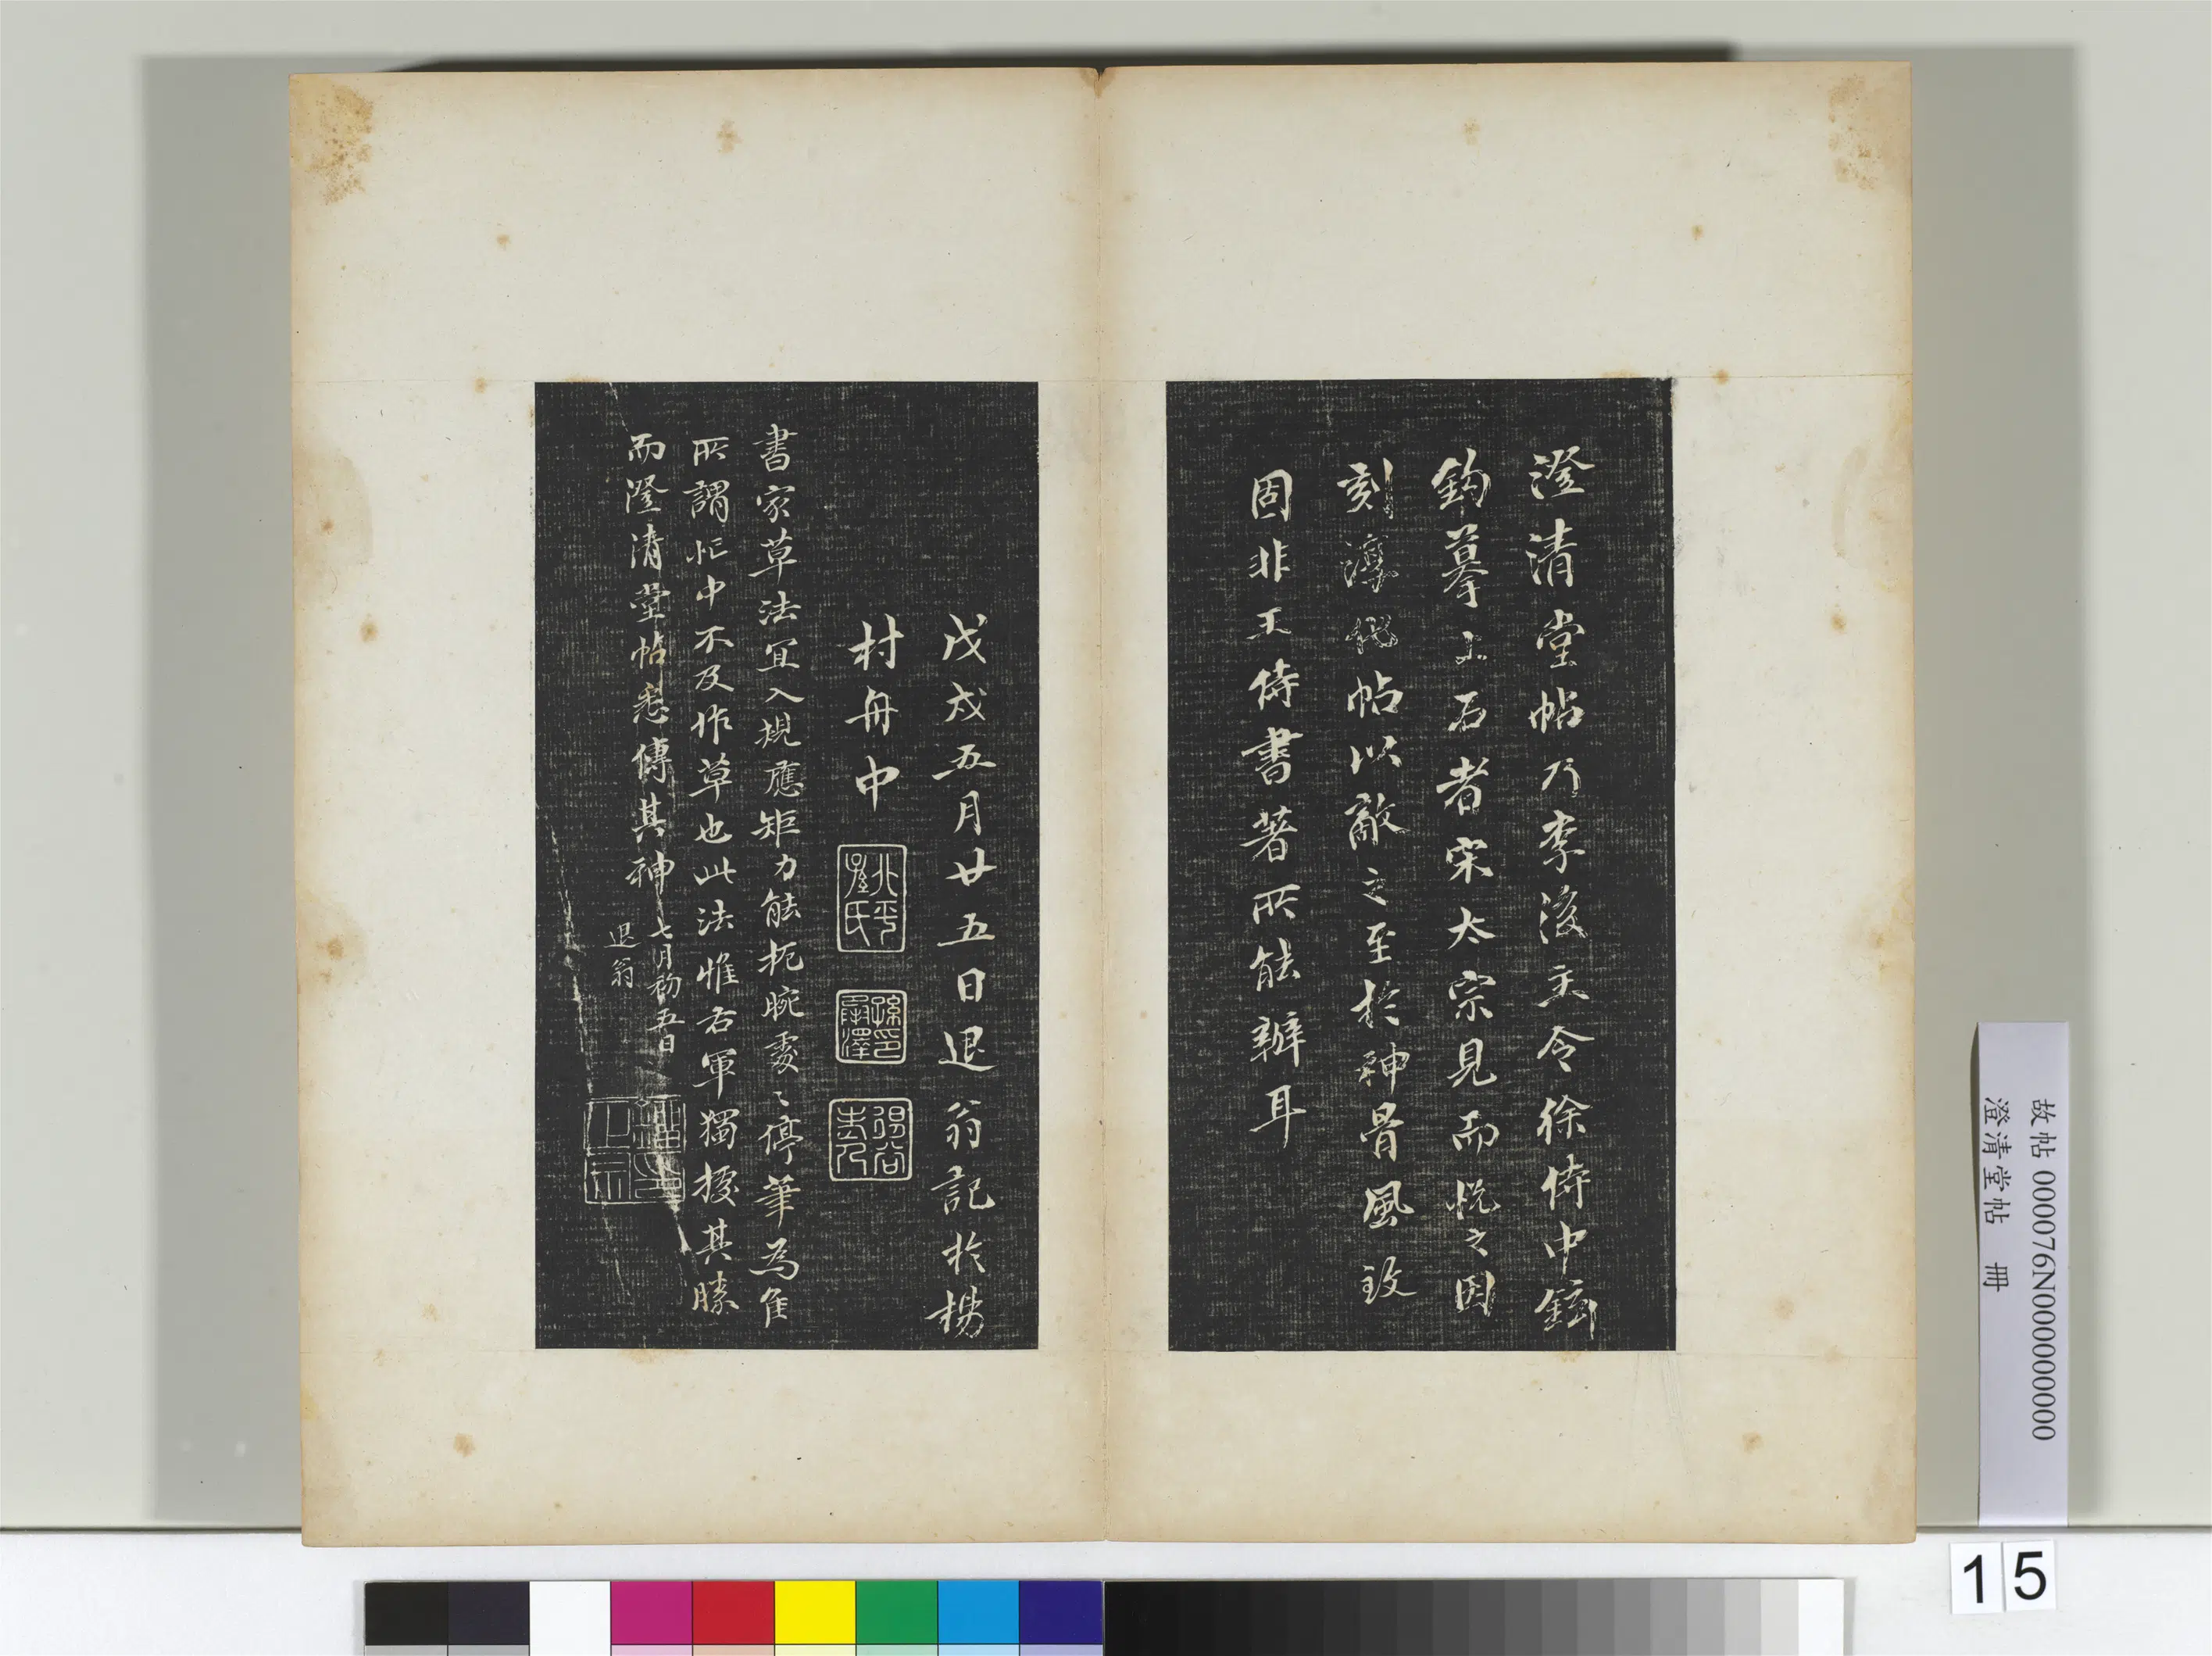 澄清堂帖乃李後主令徐侍中鉉
鈎摹上石者宋太宗見而悅之因
刻淳化帖以敵之至於神骨風致
固非王侍書著所能辦耳
戊戌五月廿五日退翁記於楊
村舟中
北平
孫氏
孫印
承澤
書家草法宜入規應矩力能扼腕處〻停筆為隹
所謂忙中不及作草也此法惟右軍獨擅其勝
而澄清堂帖悉傳其神
七月初五日
退翁
故帖 000076N000000000
澄清堂帖 冊
15